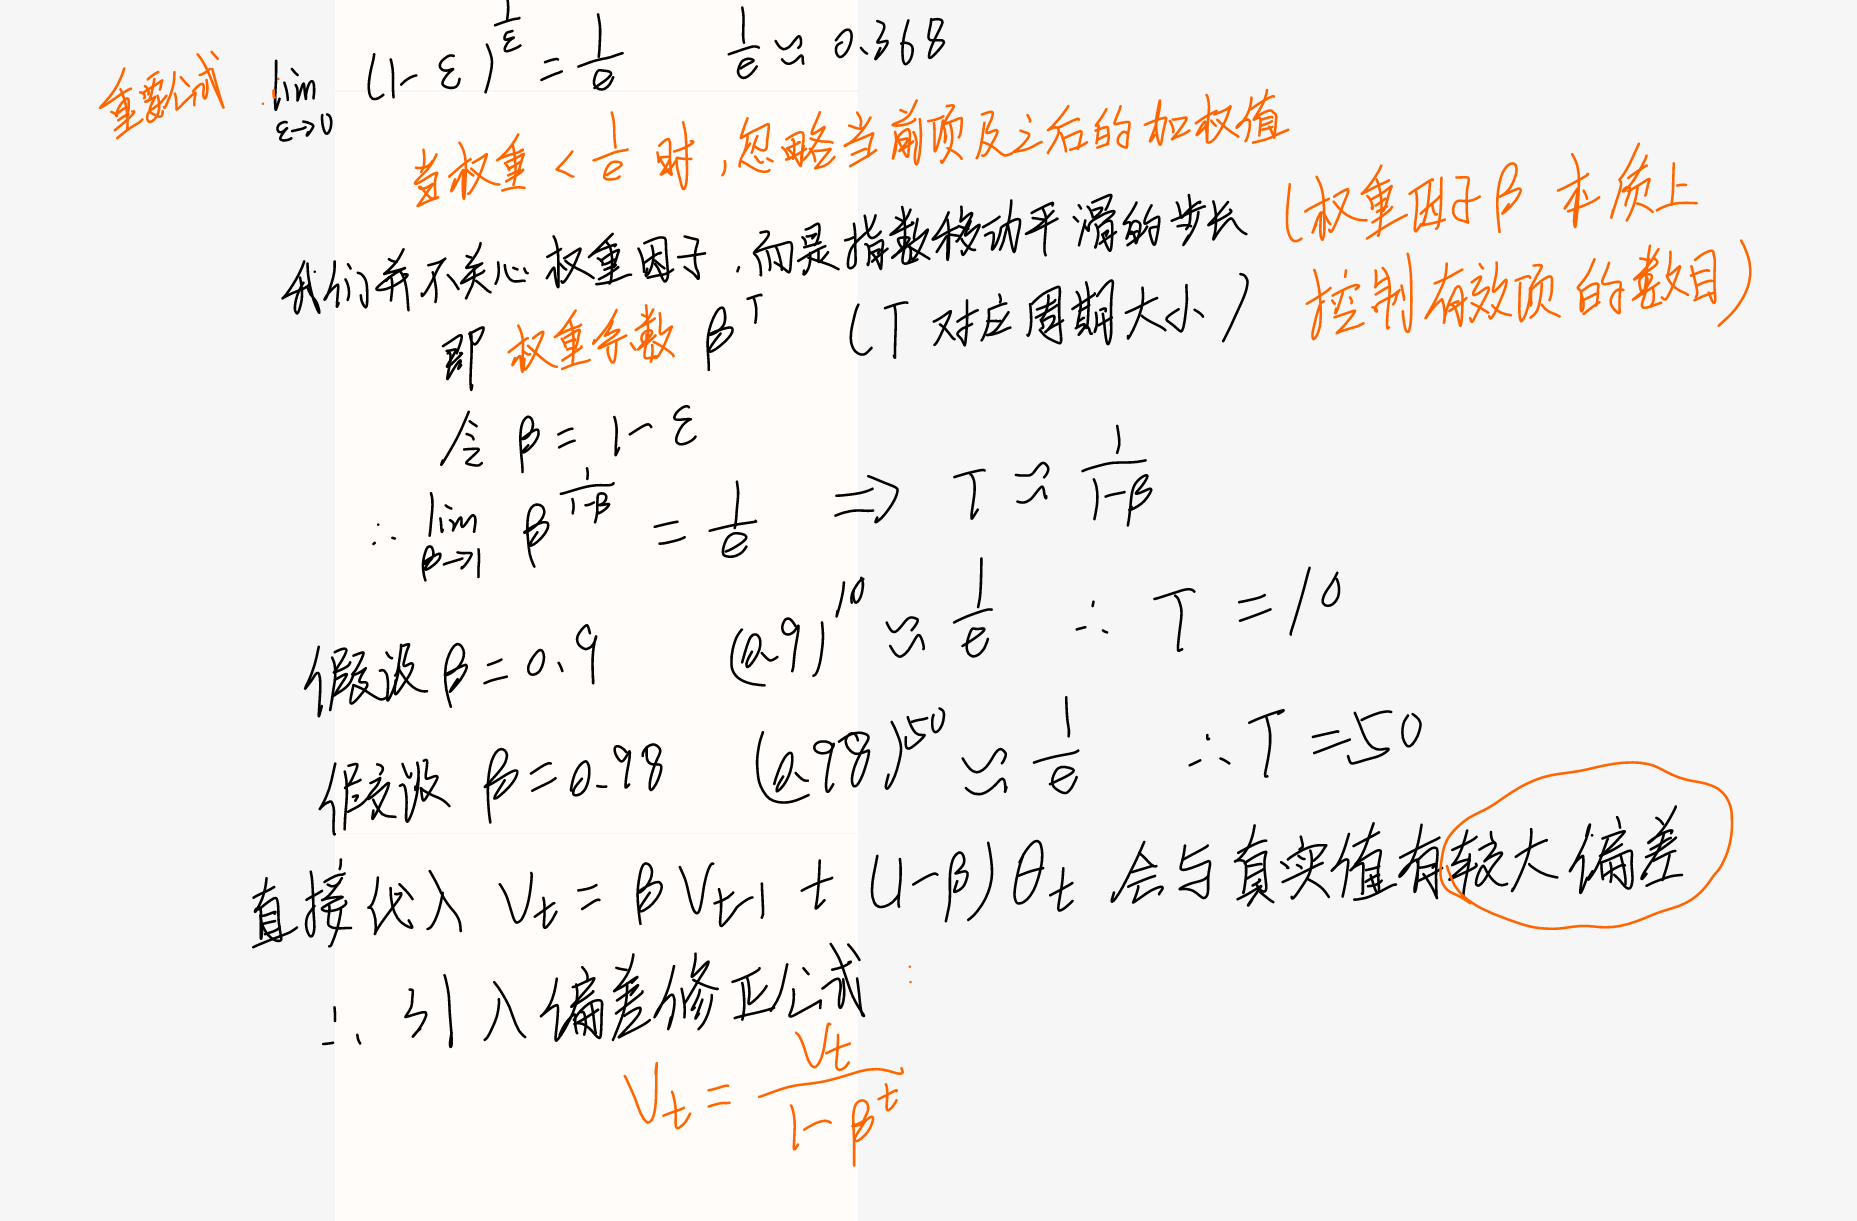 重要公式 lim ε→0 (1-ε)^{1/ε} = 1/e 1/e ≈ 0.368
当权重 < 1/e 时,忽略当前项及之后的加权值
我们并不关心权重因子,而是指数移动平滑的步长 (权重因子β 本质上
控制有效项的数目)
即 权重系数 β^T (T 对应周期大小)
令 β = 1-ε
∴ lim β→1 β^{1/(1-β)} = 1/e ⇒ T ≈ 1/(1-β)
假设 β = 0.9 (0.9)^{10} ≈ 1/e ∴ T = 10
假设 β = 0.98 (0.98)^{50} ≈ 1/e ∴ T = 50
直接代入 V_t = βV_{t-1} + (1-β)θ_t 会与真实值有较大偏差
∴ 引入偏差修正公式:
V_t = V_t/(1-β^t)